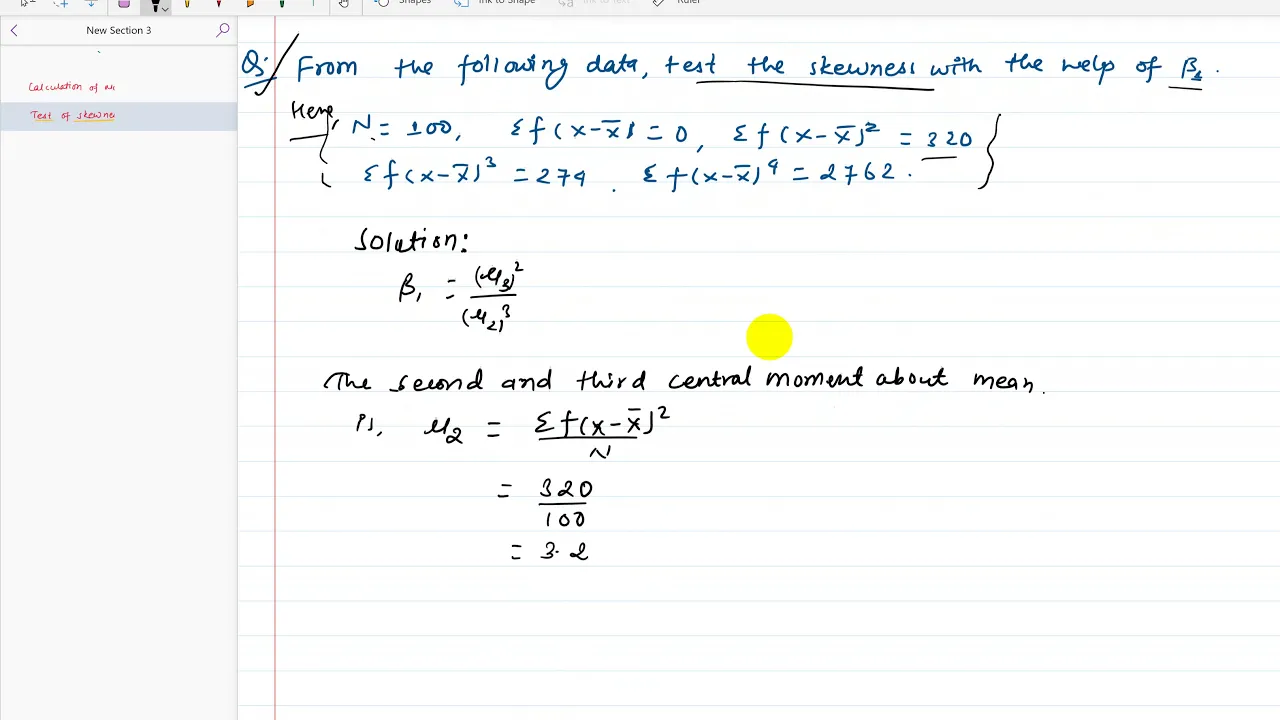 Shapes Ink to Shape Ink to Text Ruler
New Section 3
Calculation of
Test of skewne
Q: From the following data, test the skewness with the help of β₁.
Here, N = 100, Σf(x-x̄) = 0, Σf(x-x̄)² = 320
Σf(x-x̄)³ = 274. Σf(x-x̄)⁴ = 2762.
Solution:
β₁ = (μ₃)² / (μ₂)³
The second and third central moment about mean.
is, μ₂ = Σf(x-x̄)² / N
= 320 / 100
= 3.2